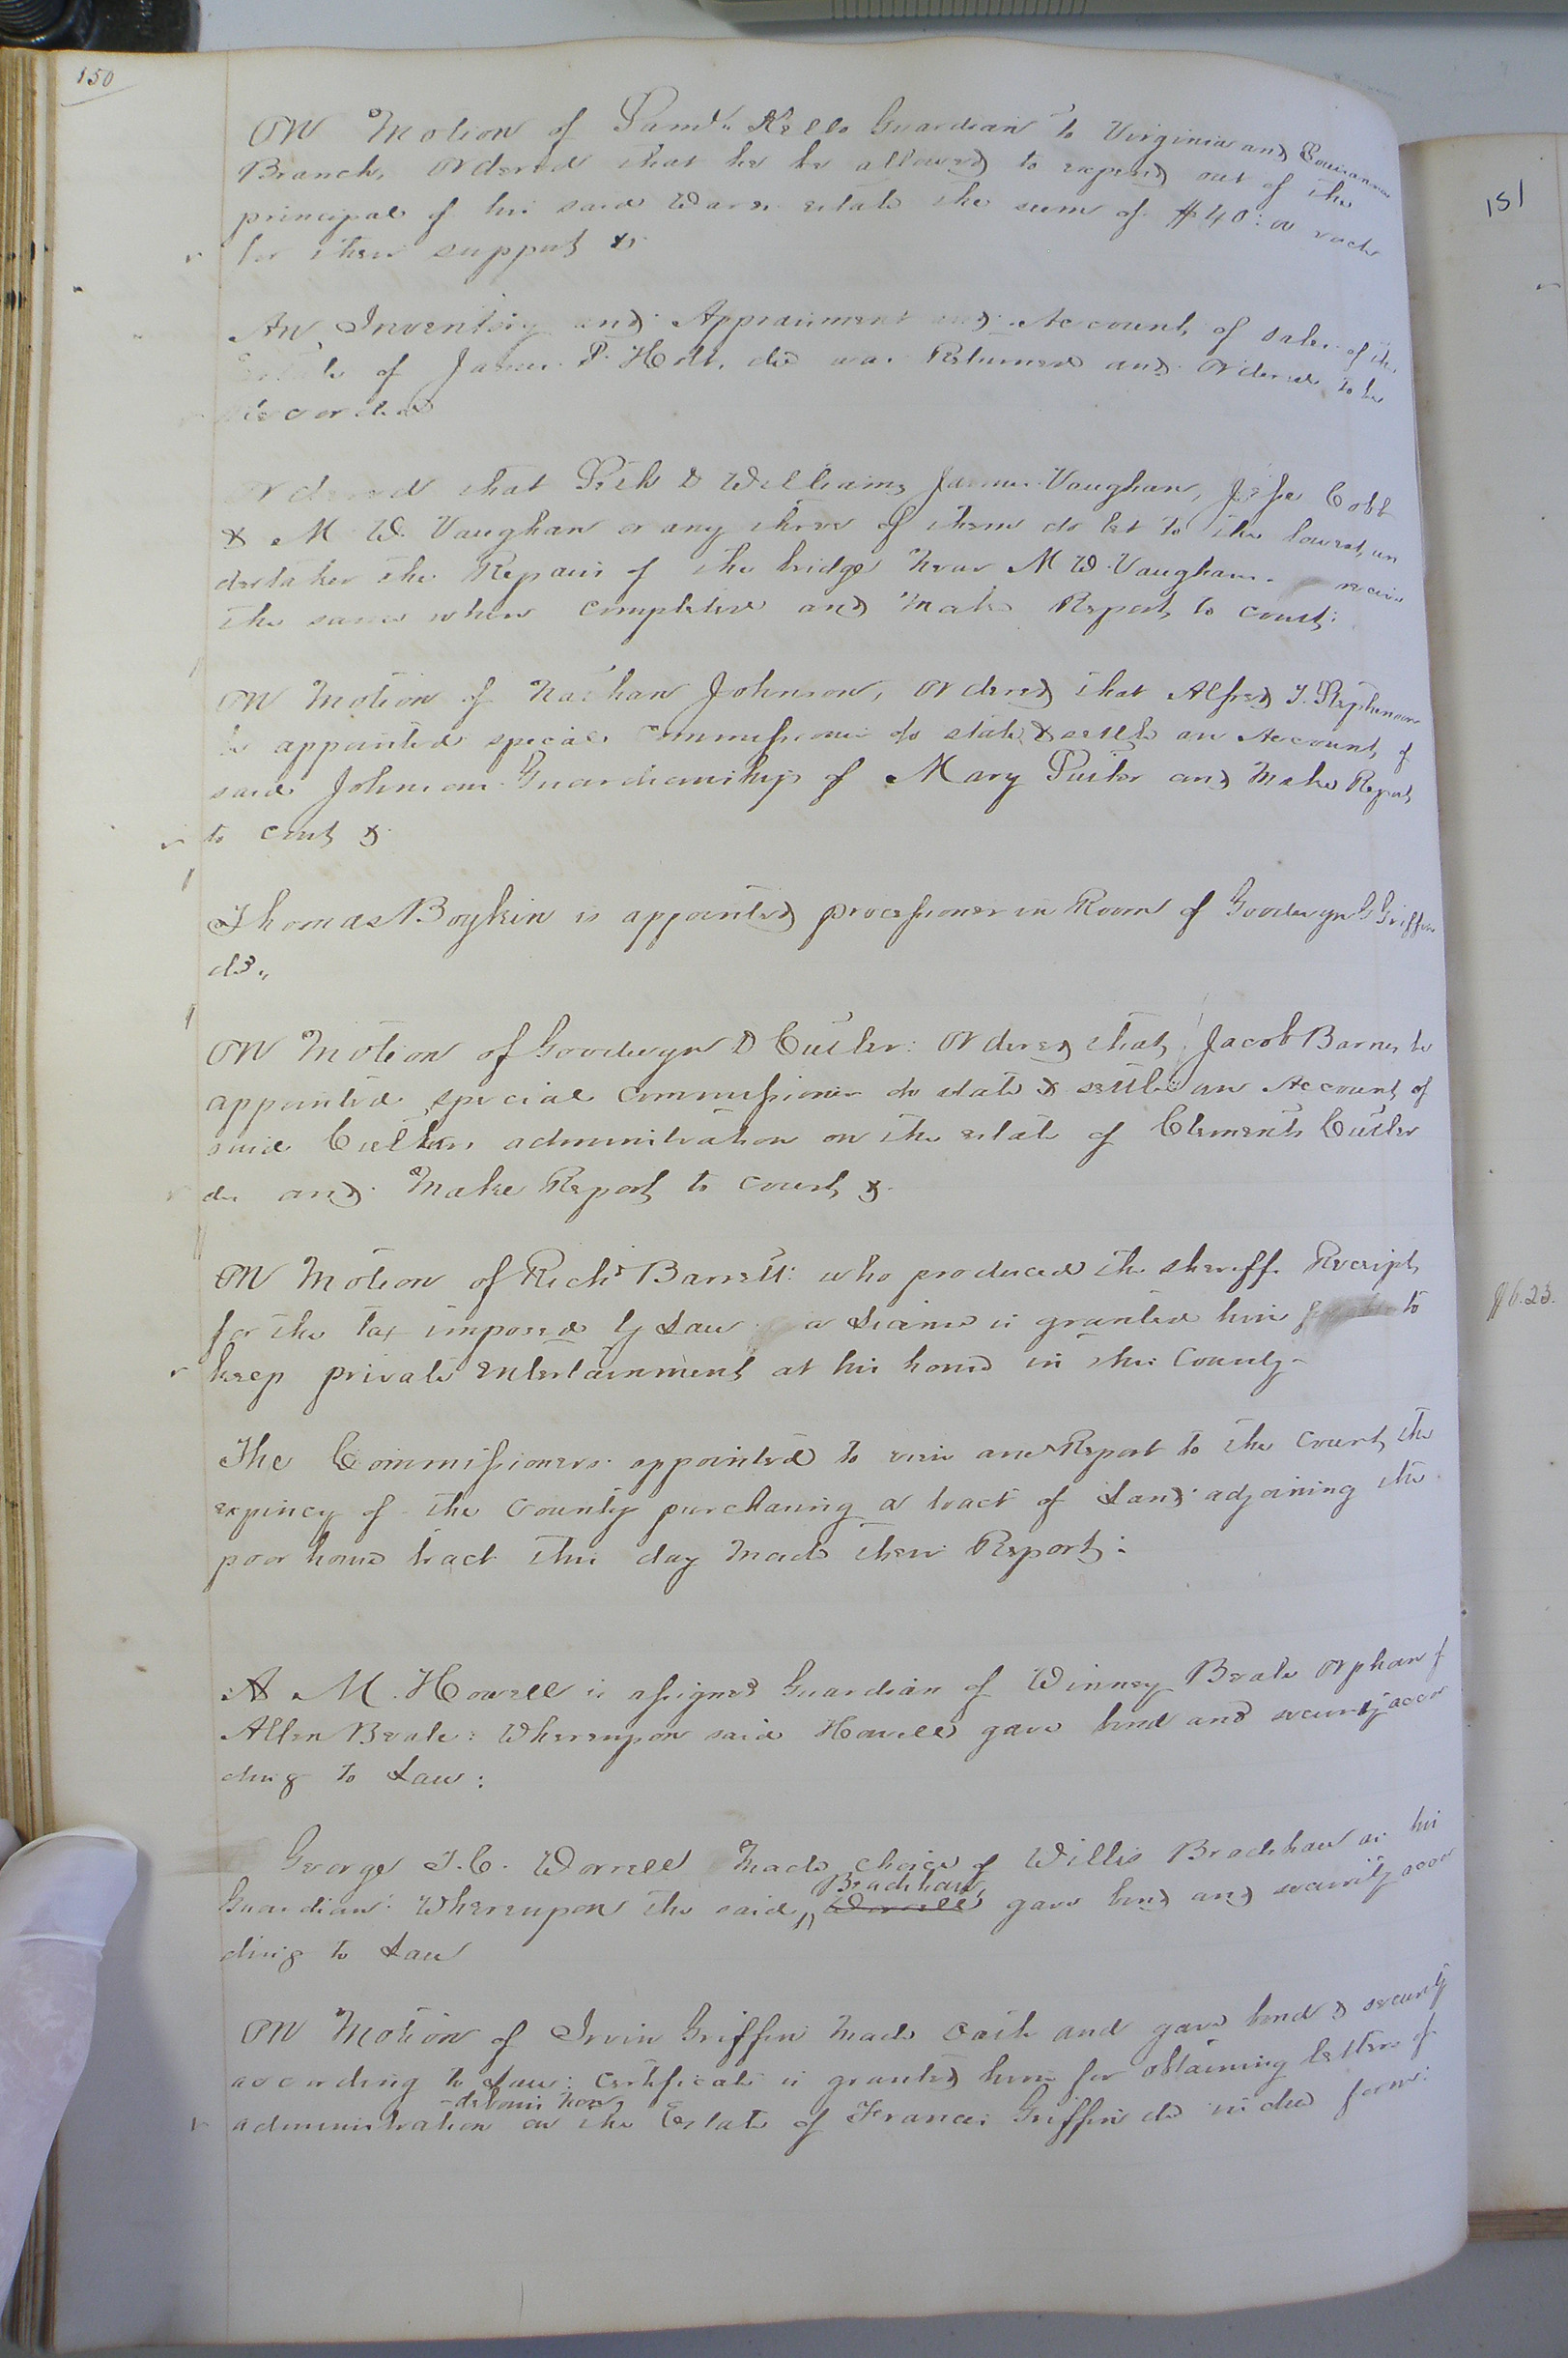 150
On Motion of Saml. Kello Guardian to Virginia and
Branch, Ordered that he be allowed to expend out of the
principal of his said Wards estate the sum of $40:00 each
for their support &c
An Inventory and Appraisment and Account of sales of the
Estate of James P. Holt, dec was Returned and Ordered to be
Recorded
Ordered that Seth D Williams, James Vaughan, Jesse Cobb
& M W. Vaughan or any three of them do let to the lowest un
dertaker the Repairs of the bridge near M W. Vaughans receive
the same when completed and Make Report to court:
On Motion of Nathan Johnson, Ordered that Alfred J. Stephenson
be appointed special commissioner to state & settle an Account of
said Johnsons Guardianship of Mary and Make Report
to court &
Thomas Boykin is appointed processioner in Room of Goodwyn G Griffin
dd.,
On Motion of Goodwyn D Cutler: Ordered that Jacob Barnes be
appointed special commissioner to state & settle an Account of
said Cutlers administration on the estate of Clements Cutler
de and Make Report to court &
On Motion of Richd Barrett: who produced the sheriffs Receipt
for the tax imposed by Law a License is granted him to
keep private Entertainment at his house in this County-
The Commissioners appointed to view and Report to the Court the
expincy of the County purchasing a tract of Land adjoining the
poor house tract this day Made their Report:
A M. Howell is assigned Guardian of Winney Beale Orphan of
Allen Beale: Whereupon said Howell gave bond and security accor
ding to Law:
George T. C. Worrell Made choice of Willis Bradshaw as his
Guardian: Whereupon the said Worrell Bradshaw gave bond and security accor
ding to Law
On Motion of Irvin Griffin Made Oath and gave bond & security
according to Law: Certificate is granted him for obtaining letters of
administration debonis non on the Estate of Francis Griffin de in due form:
151
$6.23.